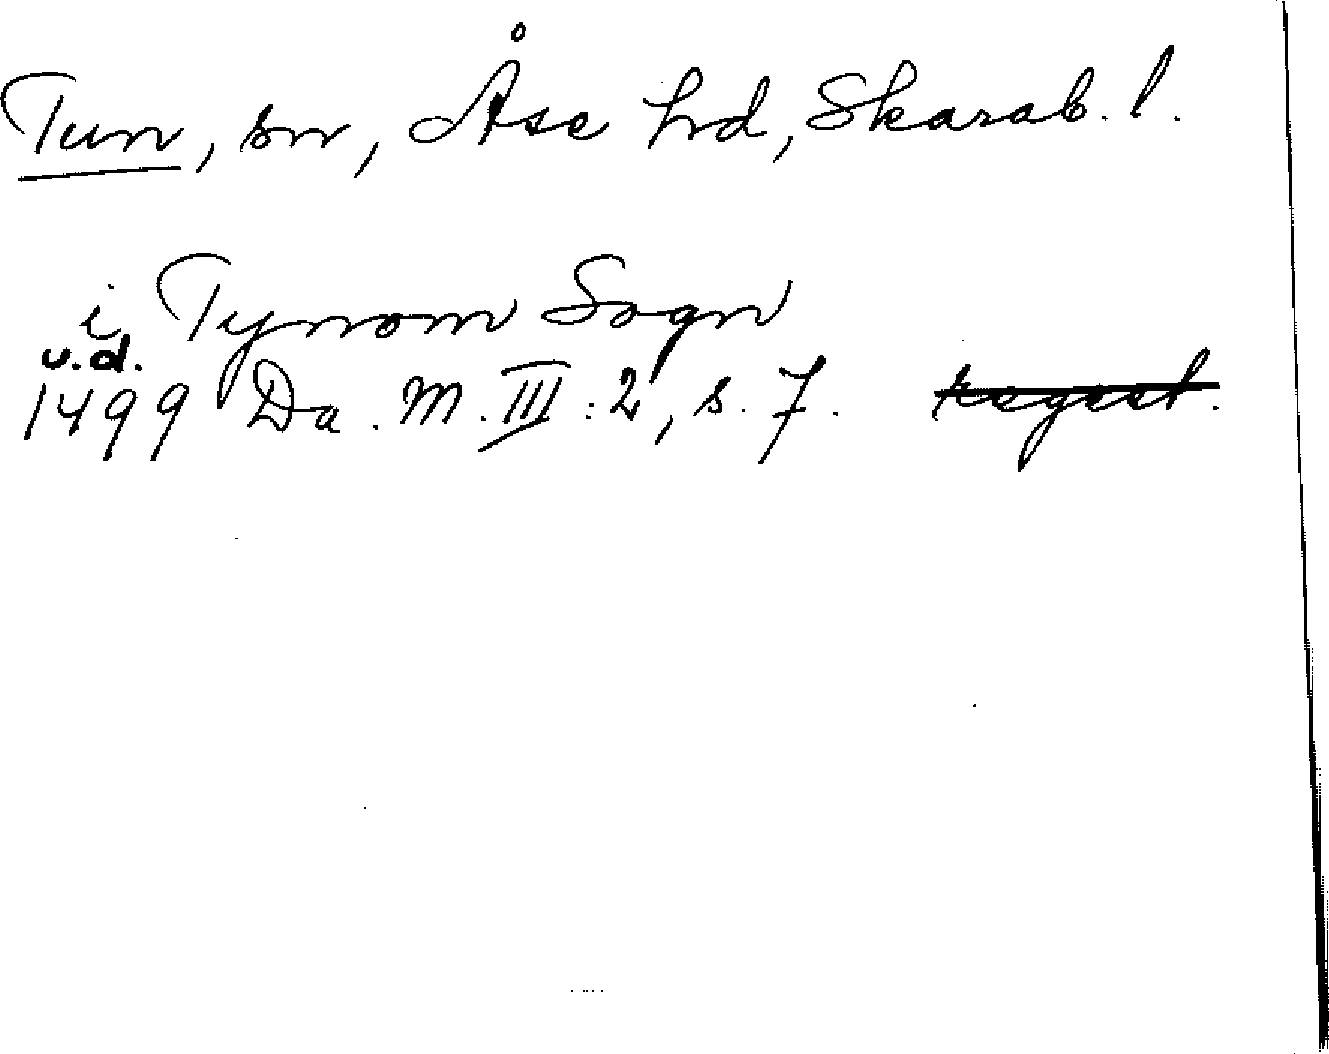 Tun, sn, Åse hd, Skarab. l.
i Tynom Sogn
u.d.
1499 Da. M. III:2, s. 7. Regest.